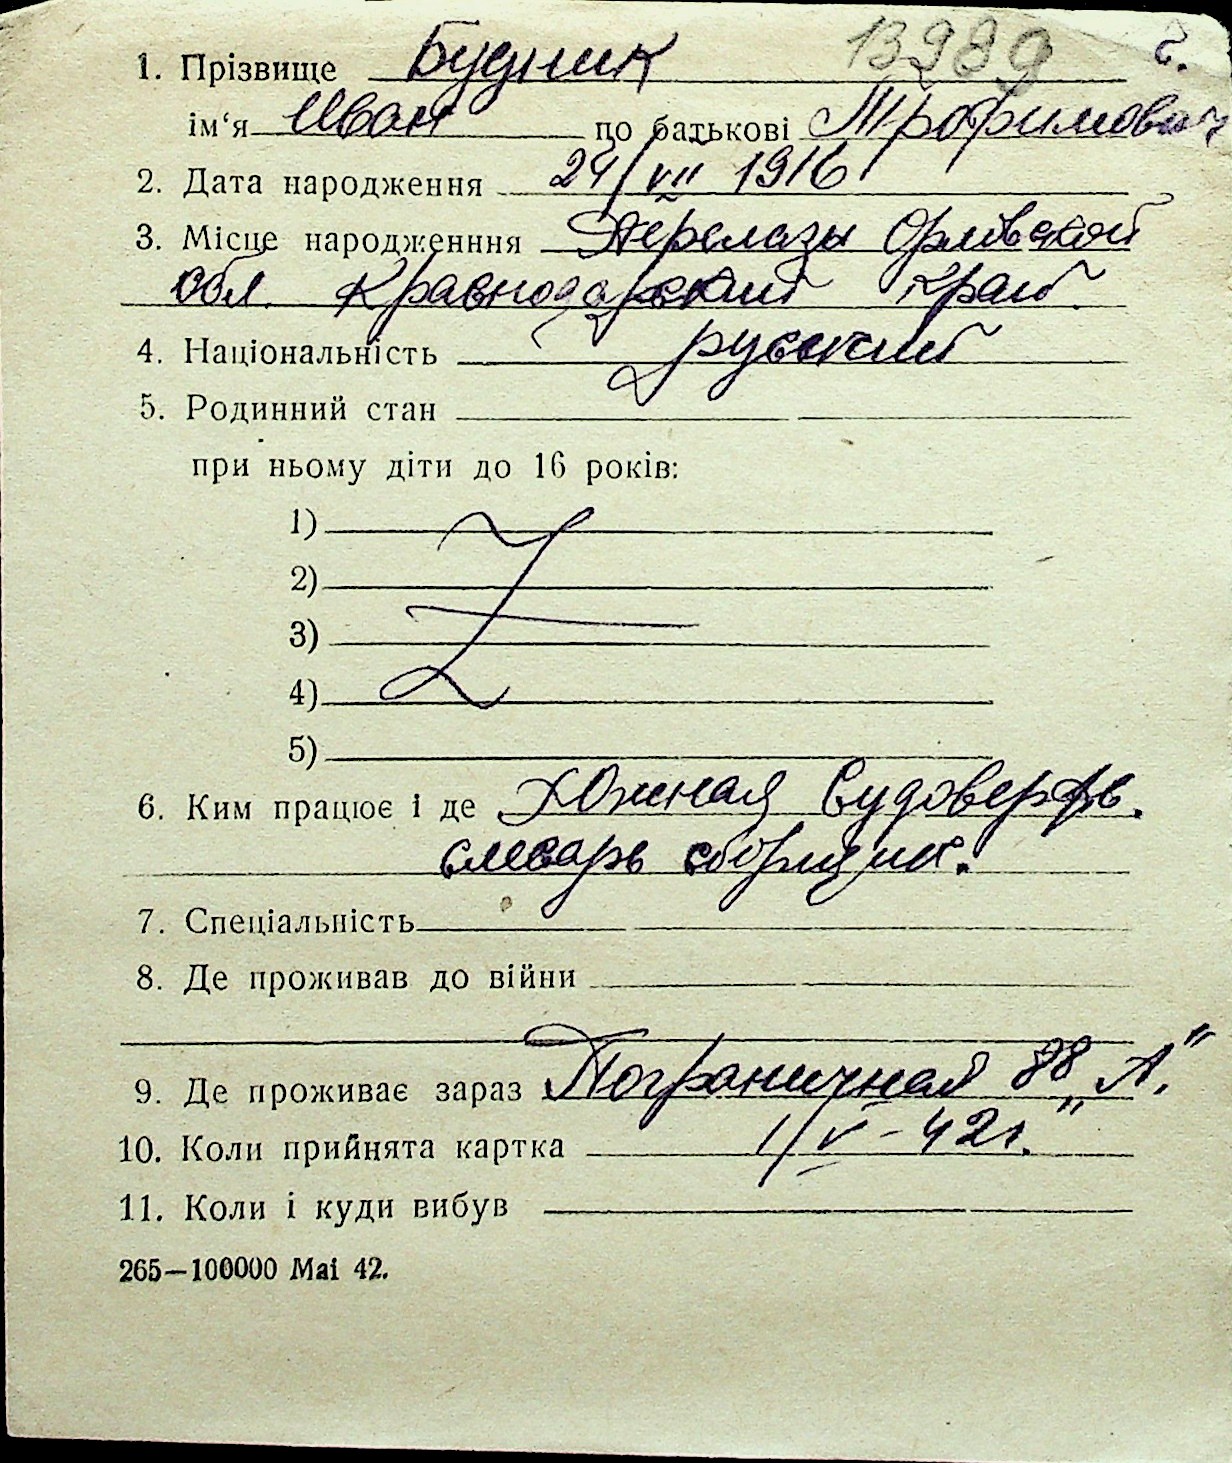 13989 г.
1. Прізвище Будник
ім‘я Иван по батькові Трофимович
2. Дата народження 24/VII 1916
3. Місце народженння Перелазы Орловской
обл. Краснодарский край
4. Національність русский
5. Родинний стан
при ньому діти до 16 років:
1)
2)
3)
4)
5)
6. Ким працює і де Южная Судоверфь.
слесарь сборщик.
7. Спеціальність
8. Де проживав до війни
9. Де проживає зараз Пограничная 88 „А“
10. Коли прийнята картка 1/V-42г.
11. Коли і куди вибув
265—100000 Mai 42.